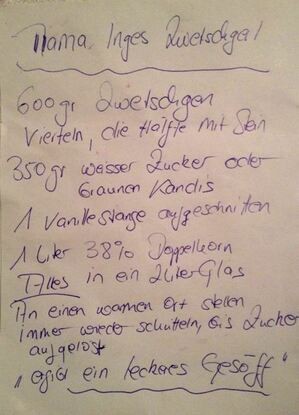 Mama Inges Zwetschgal
600 gr Zwetschgen
Vierteln, die Hälfte mit Stein
350 gr weisser Zucker oder
braunen Kandis
1 Vanillestange aufgeschnitten
1 Liter 38% Doppelkorn
Alles in ein 2 Liter Glas
An einen warmen Ort stellen
immer wieder schütteln, bis Zucker
aufgelöst
" ein leckeres Gesöff"